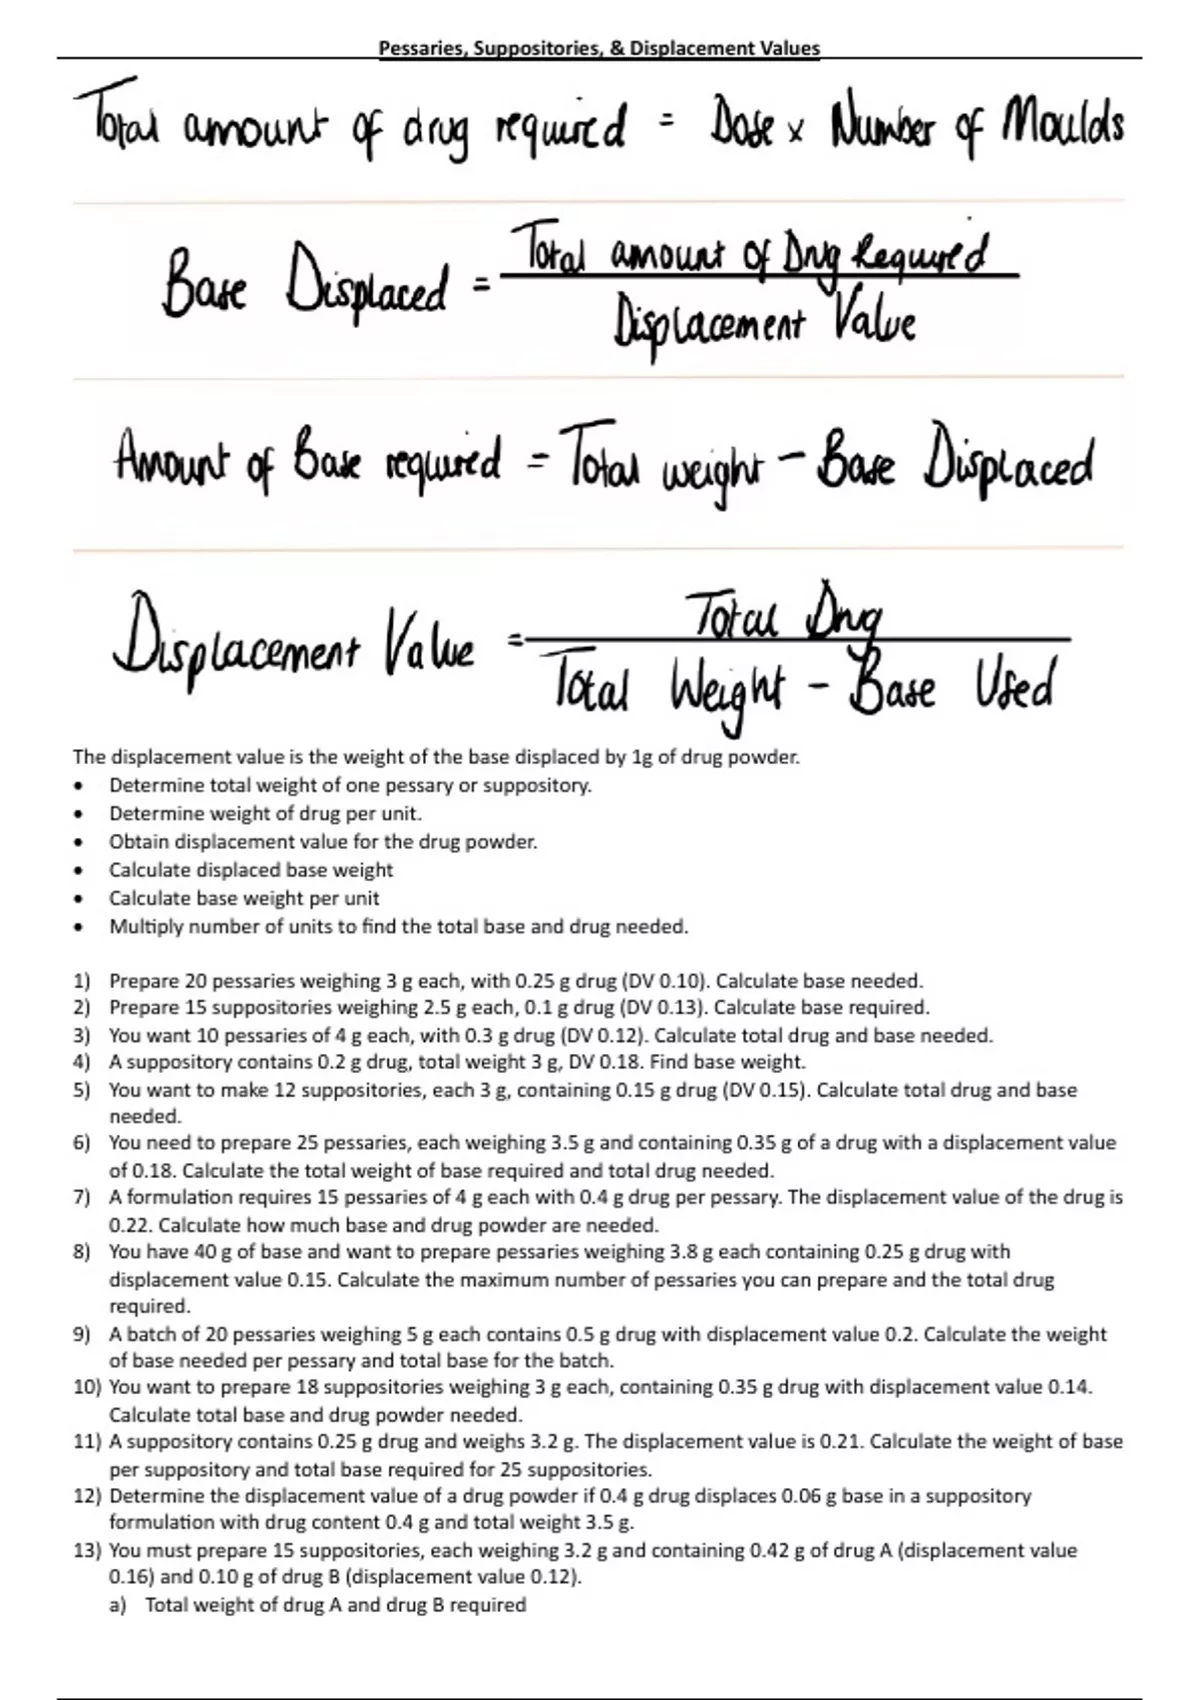 Pessaries, Suppositories, & Displacement Values
Total amount of drug required = Dose x Number of Moulds
Base Displaced = Total amount of Drug Required
Displacement Value
Amount of Base required = Total weight - Base Displaced
Displacement Value = Total Drug
Total Weight - Base Used
The displacement value is the weight of the base displaced by 1g of drug powder.
• Determine total weight of one pessary or suppository.
• Determine weight of drug per unit.
• Obtain displacement value for the drug powder.
• Calculate displaced base weight
• Calculate base weight per unit
• Multiply number of units to find the total base and drug needed.
1) Prepare 20 pessaries weighing 3 g each, with 0.25 g drug (DV 0.10). Calculate base needed.
2) Prepare 15 suppositories weighing 2.5 g each, 0.1 g drug (DV 0.13). Calculate base required.
3) You want 10 pessaries of 4 g each, with 0.3 g drug (DV 0.12). Calculate total drug and base needed.
4) A suppository contains 0.2 g drug, total weight 3 g, DV 0.18. Find base weight.
5) You want to make 12 suppositories, each 3 g, containing 0.15 g drug (DV 0.15). Calculate total drug and base
needed.
6) You need to prepare 25 pessaries, each weighing 3.5 g and containing 0.35 g of a drug with a displacement value
of 0.18. Calculate the total weight of base required and total drug needed.
7) A formulation requires 15 pessaries of 4 g each with 0.4 g drug per pessary. The displacement value of the drug is
0.22. Calculate how much base and drug powder are needed.
8) You have 40 g of base and want to prepare pessaries weighing 3.8 g each containing 0.25 g drug with
displacement value 0.15. Calculate the maximum number of pessaries you can prepare and the total drug
required.
9) A batch of 20 pessaries weighing 5 g each contains 0.5 g drug with displacement value 0.2. Calculate the weight
of base needed per pessary and total base for the batch.
10) You want to prepare 18 suppositories weighing 3 g each, containing 0.35 g drug with displacement value 0.14.
Calculate total base and drug powder needed.
11) A suppository contains 0.25 g drug and weighs 3.2 g. The displacement value is 0.21. Calculate the weight of base
per suppository and total base required for 25 suppositories.
12) Determine the displacement value of a drug powder if 0.4 g drug displaces 0.06 g base in a suppository
formulation with drug content 0.4 g and total weight 3.5 g.
13) You must prepare 15 suppositories, each weighing 3.2 g and containing 0.42 g of drug A (displacement value
0.16) and 0.10 g of drug B (displacement value 0.12).
a) Total weight of drug A and drug B required